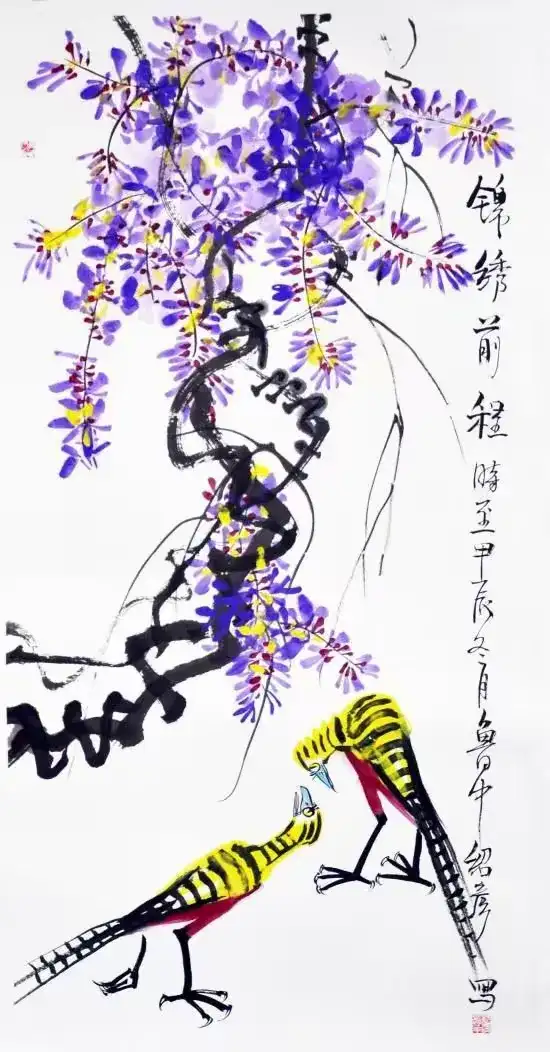 锦绣前程
时至甲辰冬月鲁中绍彦写